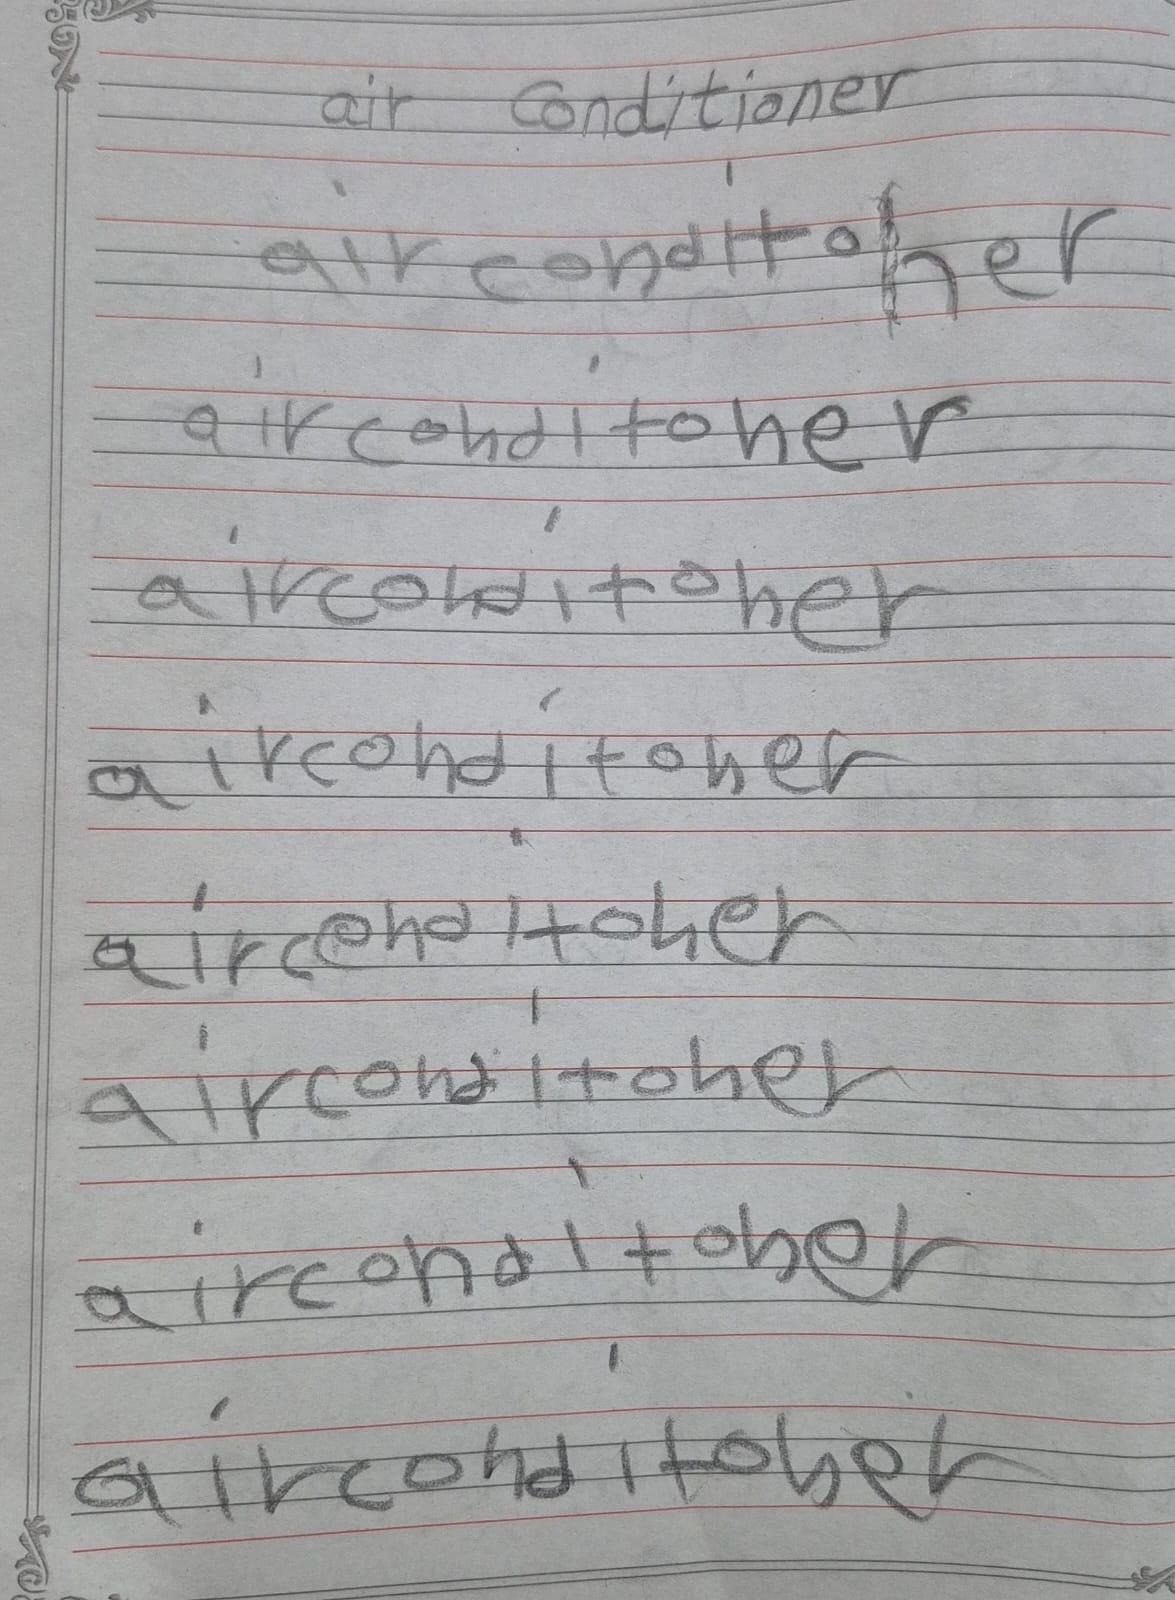 air conditioner
airconditoher
airconditoher
airconditoher
airconditoher
airconditoher
airconditoher
airconditoher
airconditoher